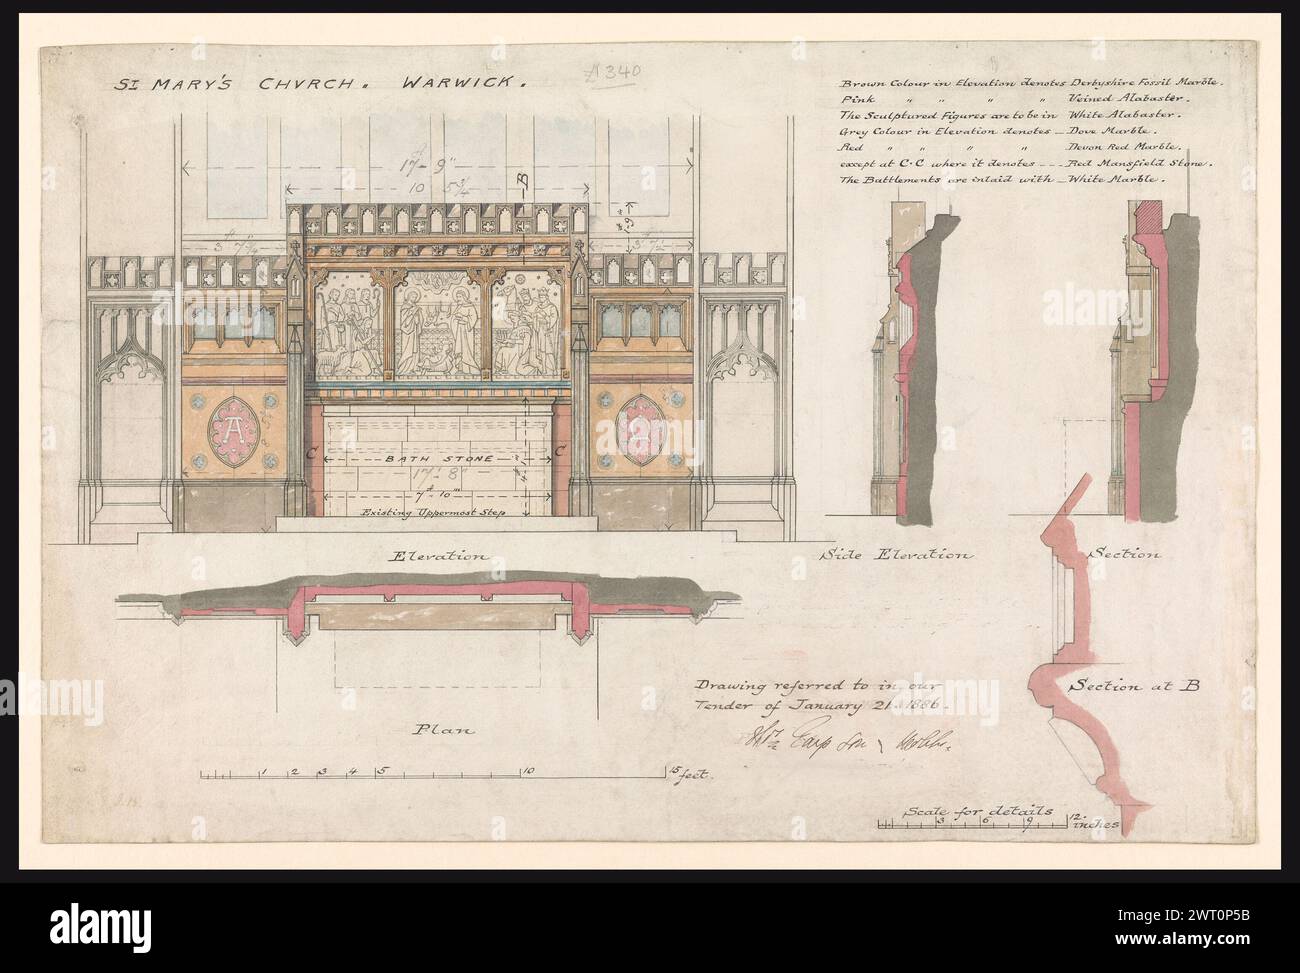 ST MARY'S CHVRCH. WARWICK.
£340
Brown Colour in Elevation denotes Derbyshire Fossil Marble.
Pink " " " " Veined Alabaster.
The Sculptured Figures are to be in White Alabaster.
Grey Colour in Elevation denotes _ Dove Marble.
Red " " " " Devon Red Marble.
except at C·C where it denotes _ _ _ Red Mansfield Stone.
The Battlements are inlaid with _ White Marble.
17'- 9"
10 5¾
B
A
C
C
BATH STONE
17' 8"
7'-10"
Existing Uppermost Step
Elevation
Side Elevation
Section
Plan
Section at B
Drawing referred to in our
Tender of January 21 1886.
1 2 3 4 5 10 15 feet.
Scale for details
3 6 9 12 inches
alamy
Image ID: 2WT0P5B
www.alamy.com